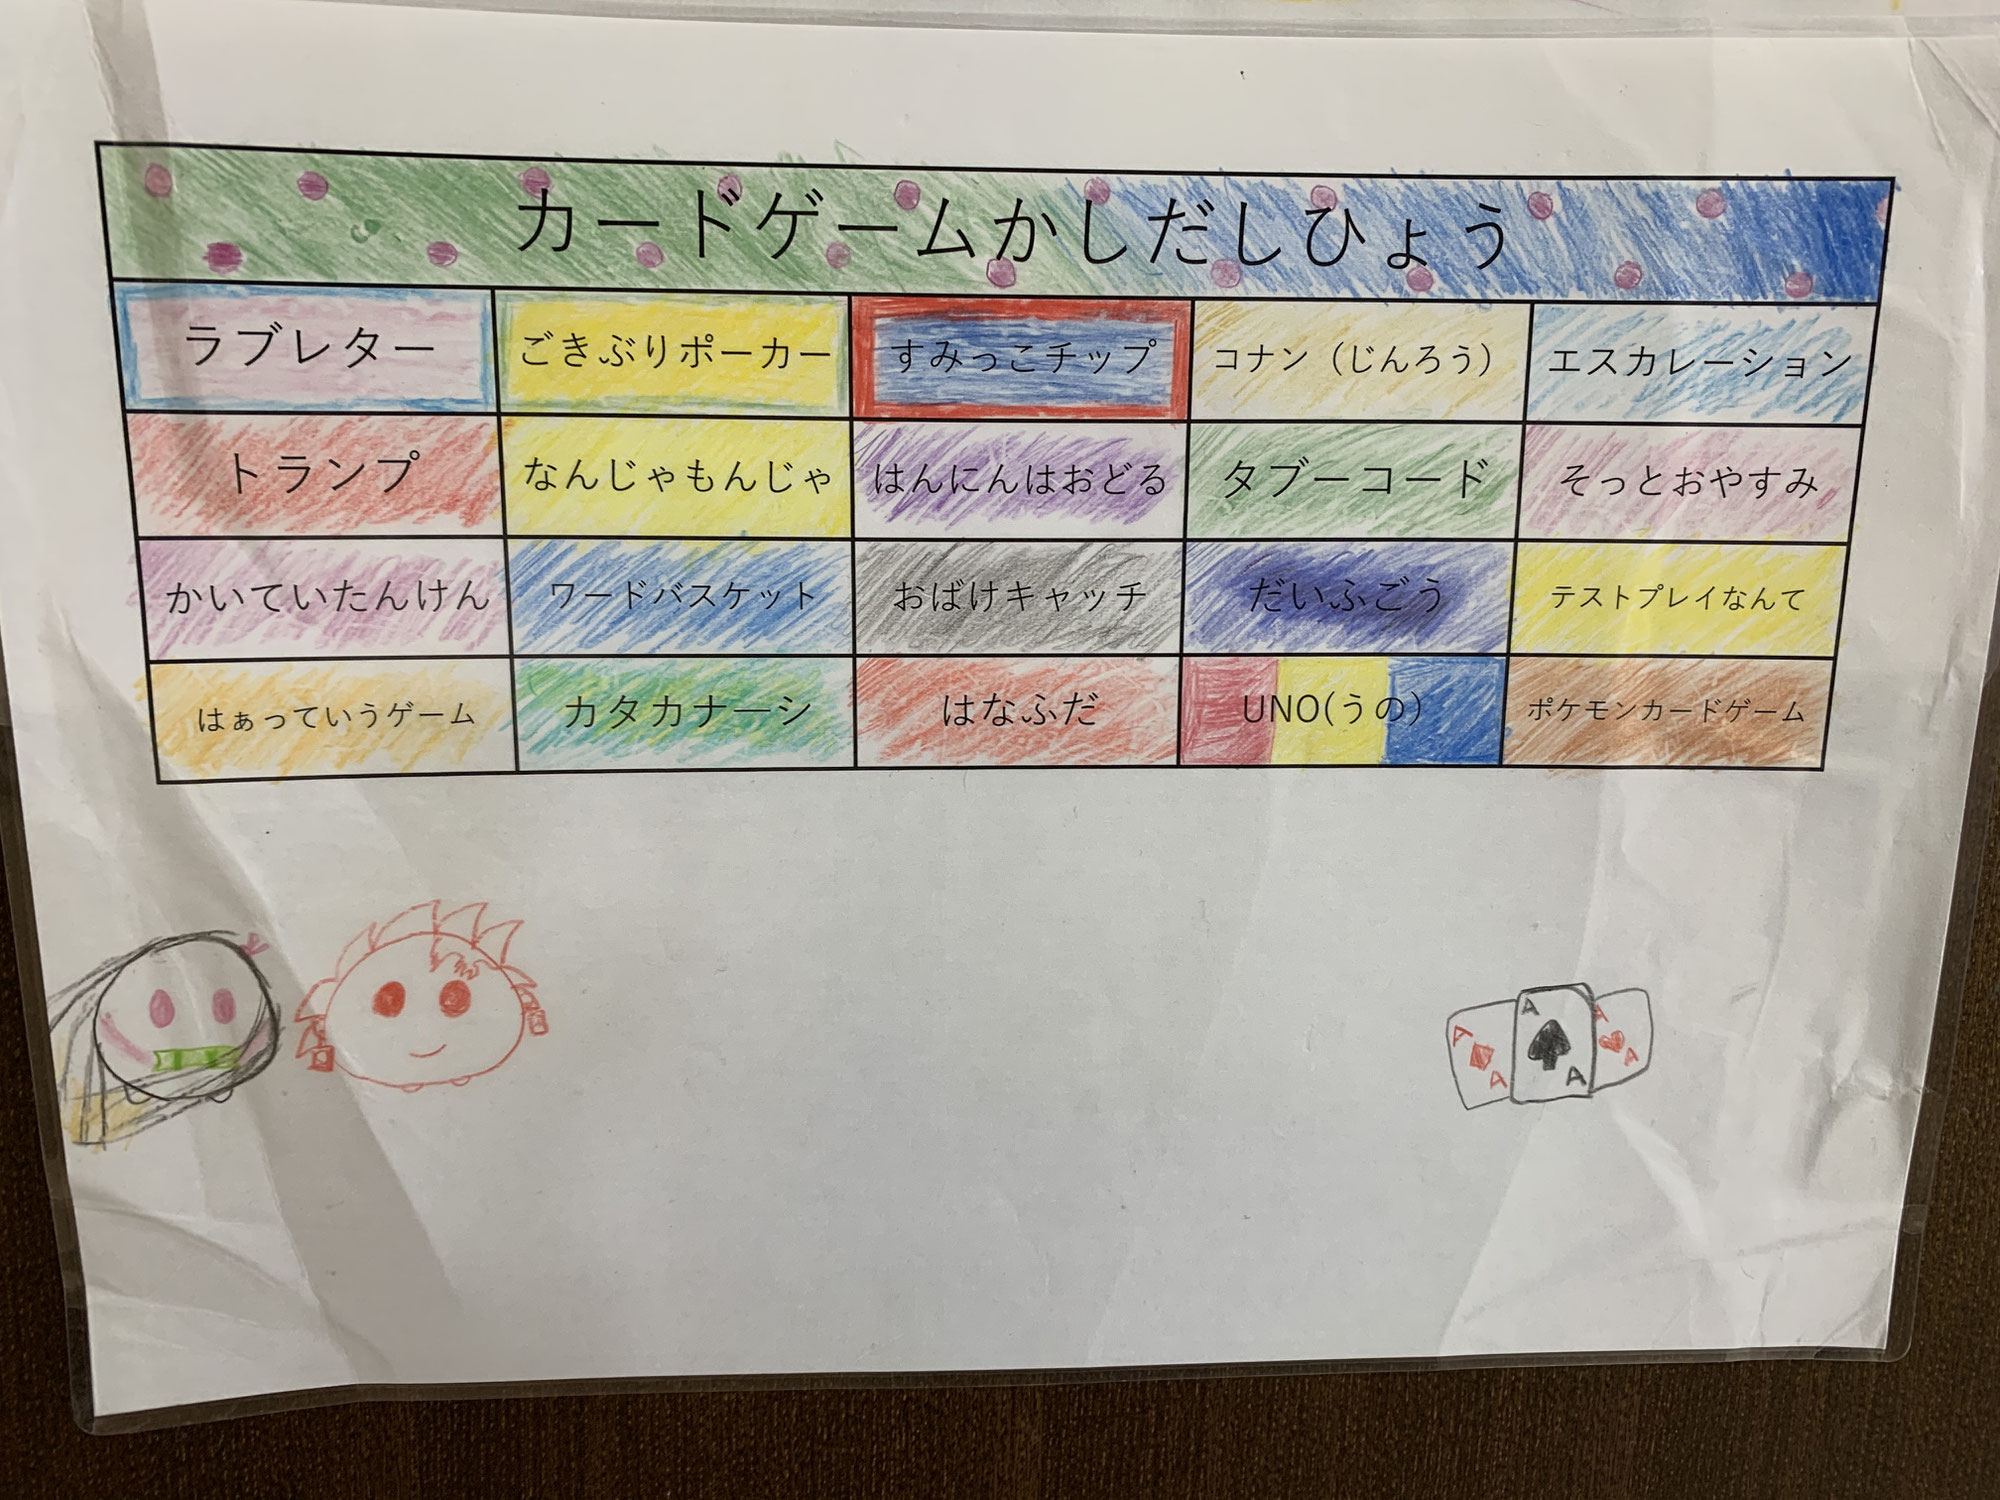 カードゲームかしだしひょう
ラブレター ごきぶりポーカー すみっこチップ コナン（じんろう） エスカレーション
トランプ なんじゃもんじゃ はんにんはおどる タブーコード そっとおやすみ
かいていたんけん ワードバスケット おばけキャッチ だいふごう テストプレイなんて
はぁっていうゲーム カタカナーシ はなふだ UNO(うの) ポケモンカードゲーム
A A A
A A A